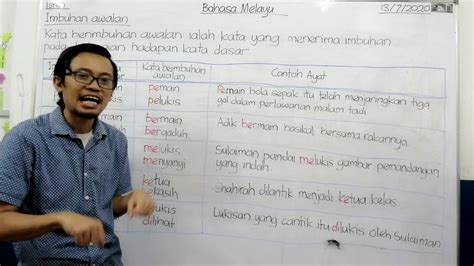 Isnin
Bahasa Melayu
13/7/2020
Imbuhan awalan
Kata berimbuhan awalan ialah kata yang menerima imbuhan
pada hadapan kata dasar.
Kata berimbuhan awalan
Contoh Ayat
pemain
pelukis
Pemain bola sepak itu telah menjaringkan tiga
gol dalam perlawanan malam tadi.
bermain
bergaduh
Adik bermain basikal bersama rakannya.
melukis
menyanyi
Sulaiman pandai melukis gambar pemandangan
yang indah.
ketua
kekasih
Shahirah dilantik menjadi ketua kelas.
dilukis
dilihat
Lukisan yang cantik itu dilukis oleh Sulaiman